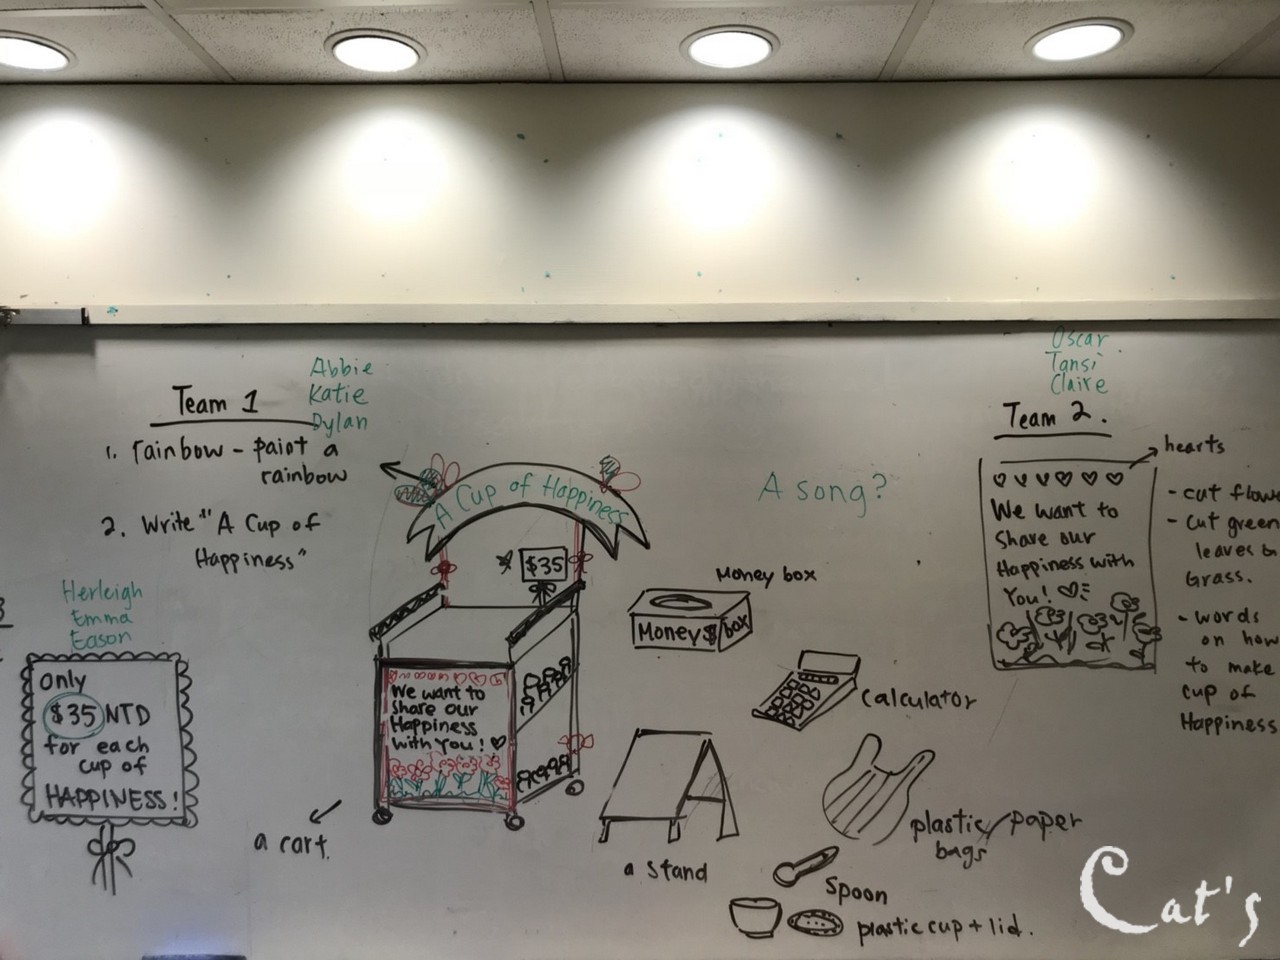 Abbie
Katie
Dylan
Team 1
1. rainbow - paint a
rainbow
2. Write "A Cup of
Happiness"
Herleigh
Emma
Eason
only
$35 NTD
for each
cup of
HAPPINESS!
A Cup of Happiness
$35
We want to
Share our
Happiness
with You!
a cart
A song?
Money box
Money $ box
calculator
a stand
plastic/paper
bags
Spoon
plastic cup + lid.
Oscar
Tansi
Claire
Team 2.
hearts
We want to
Share our
Happiness with
You!
- cut flowe
- cut green
leaves &
Grass.
- words
on how
to make
cup of
Happiness
Cat's